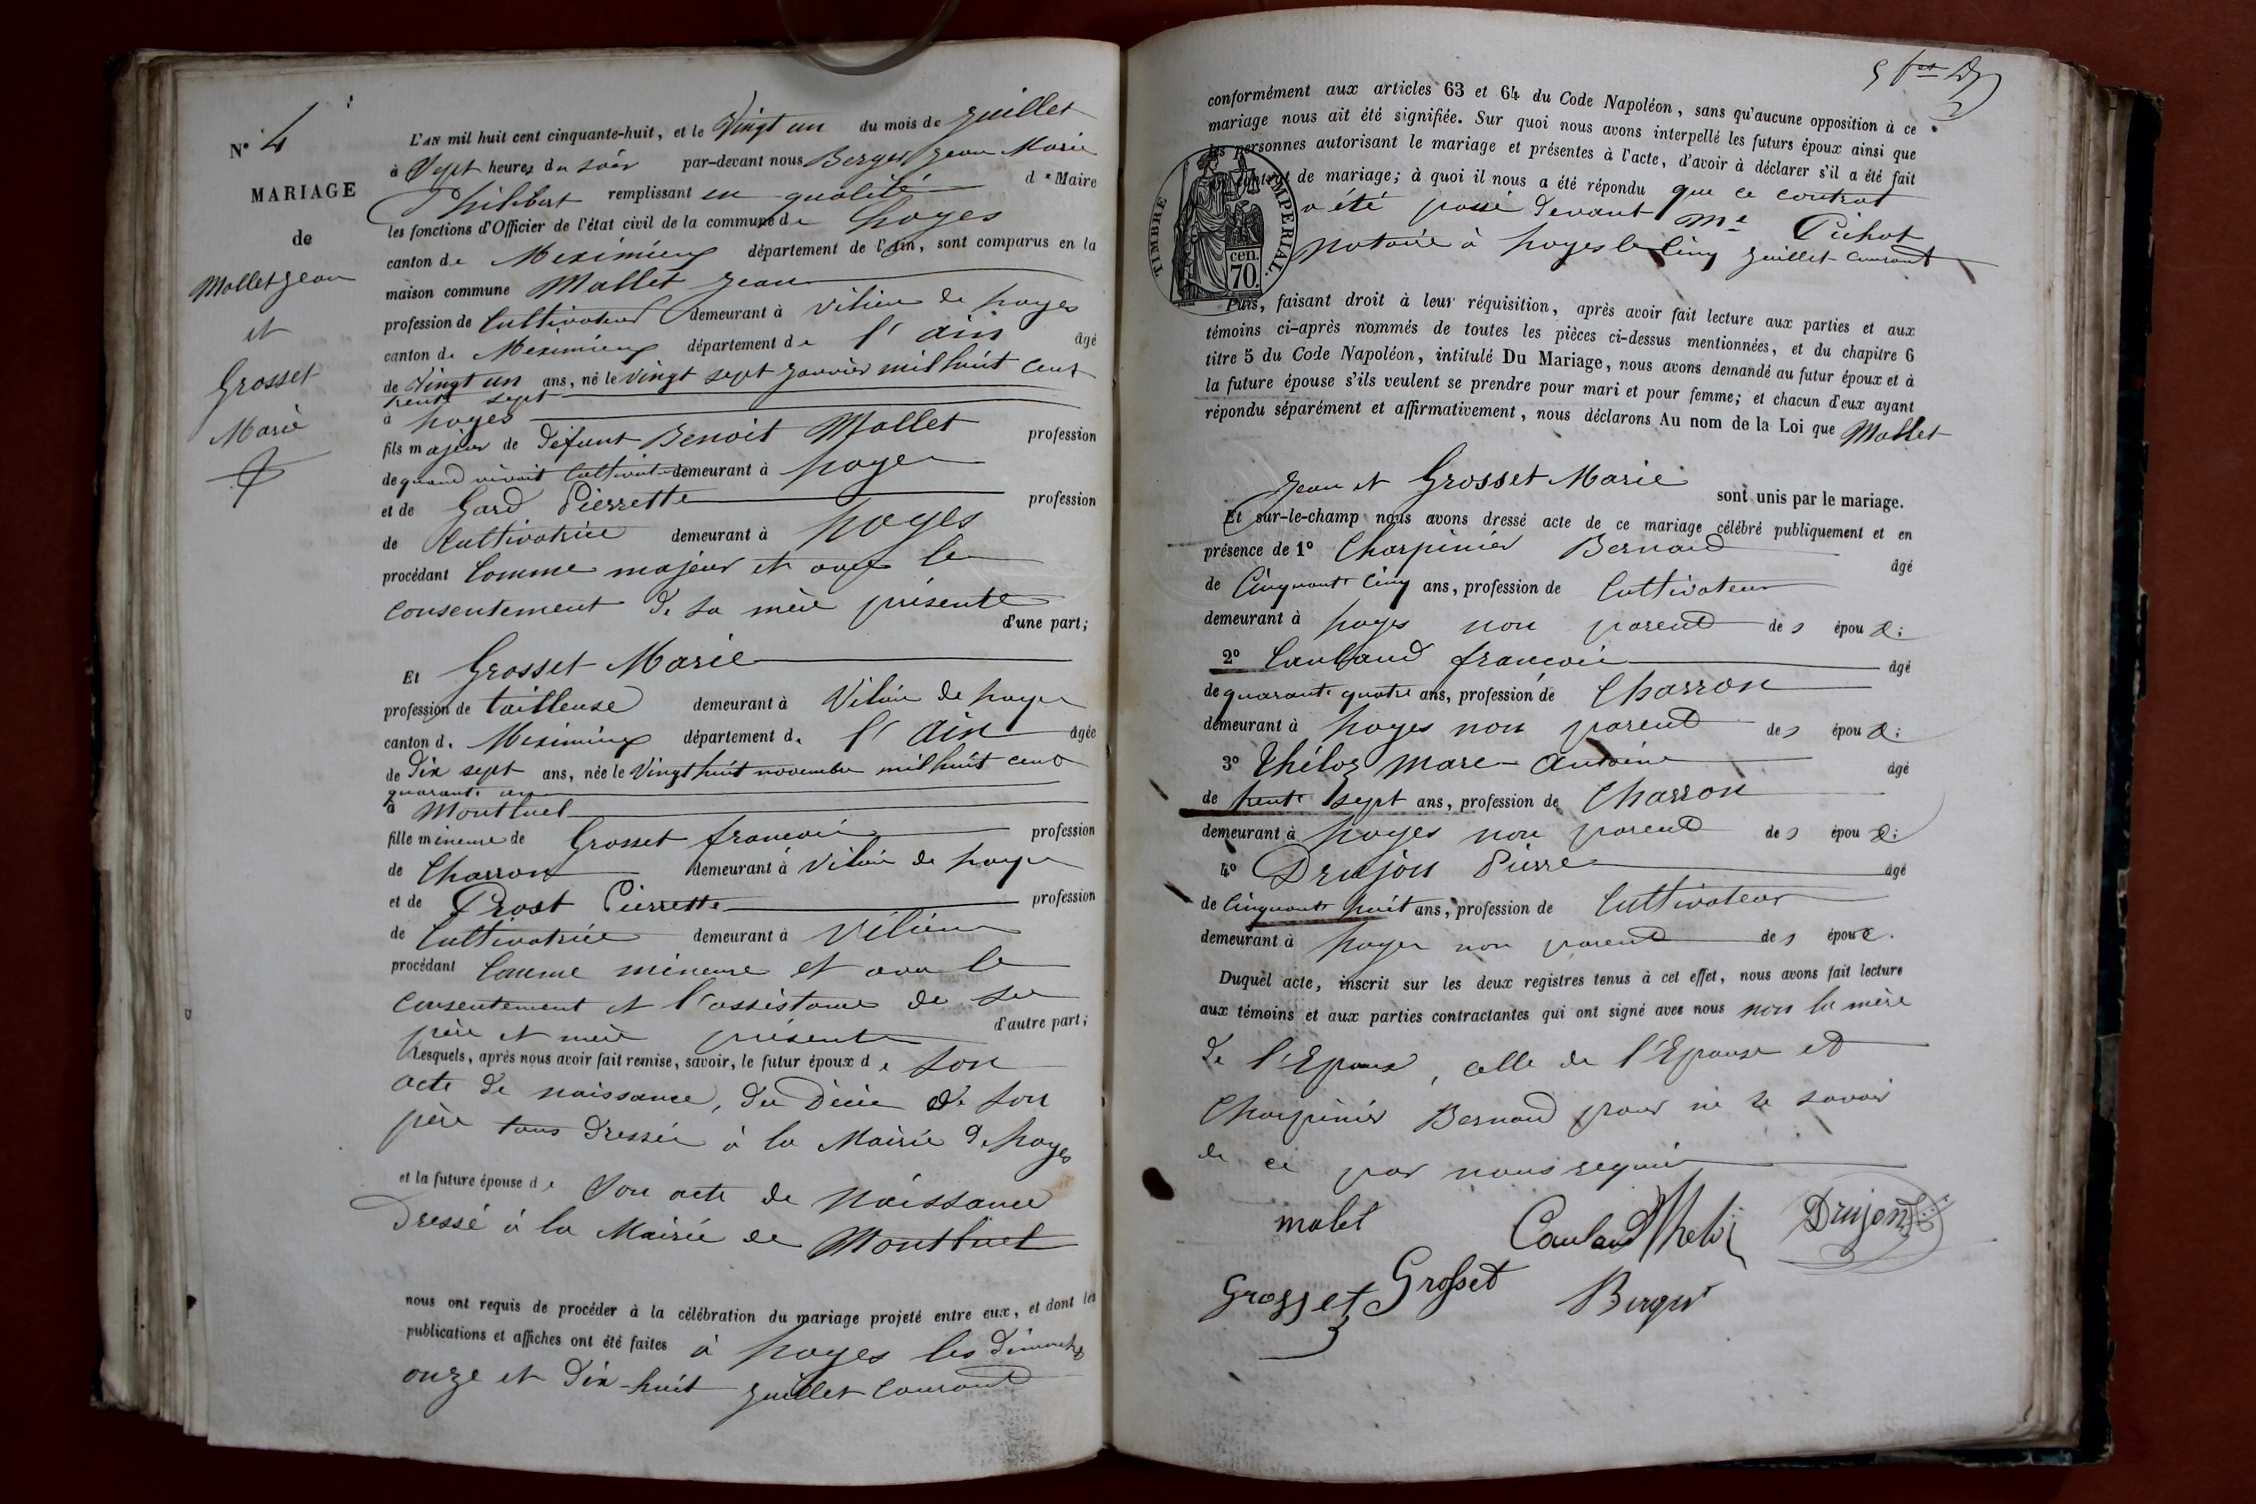 N° 4
MARIAGE
de
Mollet Jean
et
Grosset
Marie
L'AN mil huit cent cinquante-huit, et le Vingt un du mois de Juillet
à Sept heures du soir par-devant nous Berger Jean Marie
Philibert remplissant en qualité de Maire
les fonctions d'Officier de l'état civil de la commune de Loyes
canton de Meximieux département de l'Ain, sont comparus en la
maison commune Mollet Jean
profession de Cultivateur demeurant à Vilieu de Loyes
canton de Meximieux département de l'ain âgé
de Vingt un ans, né le vingt sept Janvier mil huit cent
trente sept
à Loyes
fils majeur de défunt Benoit Mollet profession
de quand vivait Cultivateur demeurant à Loyes
et de Gard Pierrette profession
de Cultivatrice demeurant à Loyes
procédant Comme majeur et avec le
Consentement de sa mère présente
d'une part;
Et Grosset Marie
profession de tailleuse demeurant à Vilieu de Loyes
canton de Meximieux département de l'ain âgée
de Dix sept ans, née le Vingt huit novembre mil huit cent
quarante
à Montluel
fille mineure de Grosset françois profession
de Charron demeurant à Vilieu de Loyes
et de Prost Pierrette profession
de Cultivatrice demeurant à Vilieu
procédant Comme mineure et avec le
Consentement et l'assistance de ses
père et mère présents d'autre part;
Lesquels, après nous avoir fait remise, savoir, le futur époux de son
acte de naissance, du Décès de son
père tous dressés à la Mairie de Loyes
et la future épouse de Son acte de Naissance
Dressé à la Mairie de Montluel
nous ont requis de procéder à la célébration du mariage projeté entre eux, et dont les
publications et affiches ont été faites à Loyes les dimanches
onze et Dix-huit Juillet Courant
conformément aux articles 63 et 64 du Code Napoléon, sans qu'aucune opposition à ce
mariage nous ait été signifiée. Sur quoi nous avons interpellé les futurs époux ainsi que
les personnes autorisant le mariage et présentes à l'acte, d'avoir à déclarer s'il a été fait
contrat de mariage; à quoi il nous a été répondu que ce contrat
a été passé devant Me Pichat
Notaire à Loyes le Cinq Juillet Courant
TIMBRE IMPERIAL.
cen.
70.
Puis, faisant droit à leur réquisition, après avoir fait lecture aux parties et aux
témoins ci-après nommés de toutes les pièces ci-dessus mentionnées, et du chapitre 6
titre 5 du Code Napoléon, intitulé Du Mariage, nous avons demandé au futur époux et à
la future épouse s'ils veulent se prendre pour mari et pour femme; et chacun d'eux ayant
répondu séparément et affirmativement, nous déclarons Au nom de la Loi que Mollet
Jean et Grosset Marie sont unis par le mariage.
Et sur-le-champ nous avons dressé acte de ce mariage célébré publiquement et en
présence de 1° Charpinier Bernard âgé
de Cinquante Cinq ans, profession de Cultivateur
demeurant à Loyes non parent des époux;
2° Caulaud françois âgé
de quarante quatre ans, profession de Charron
demeurant à Loyes non parent des époux;
3° Théloz Marc Antoine âgé
de trente sept ans, profession de Charron
demeurant à Loyes non parent des époux;
4° Drujon Pierre âgé
de Cinquante huit ans, profession de Cultivateur
demeurant à Loyes non parent des époux.
Duquel acte, inscrit sur les deux registres tenus à cet effet, nous avons fait lecture
aux témoins et aux parties contractantes qui ont signé avec nous non la mère
de l'Epoux, celle de l'Epouse et
Charpinier Bernard pour ne le savoir
de ce par nous requis
molet Caulaud Drujon
Grosset Grosset Berger